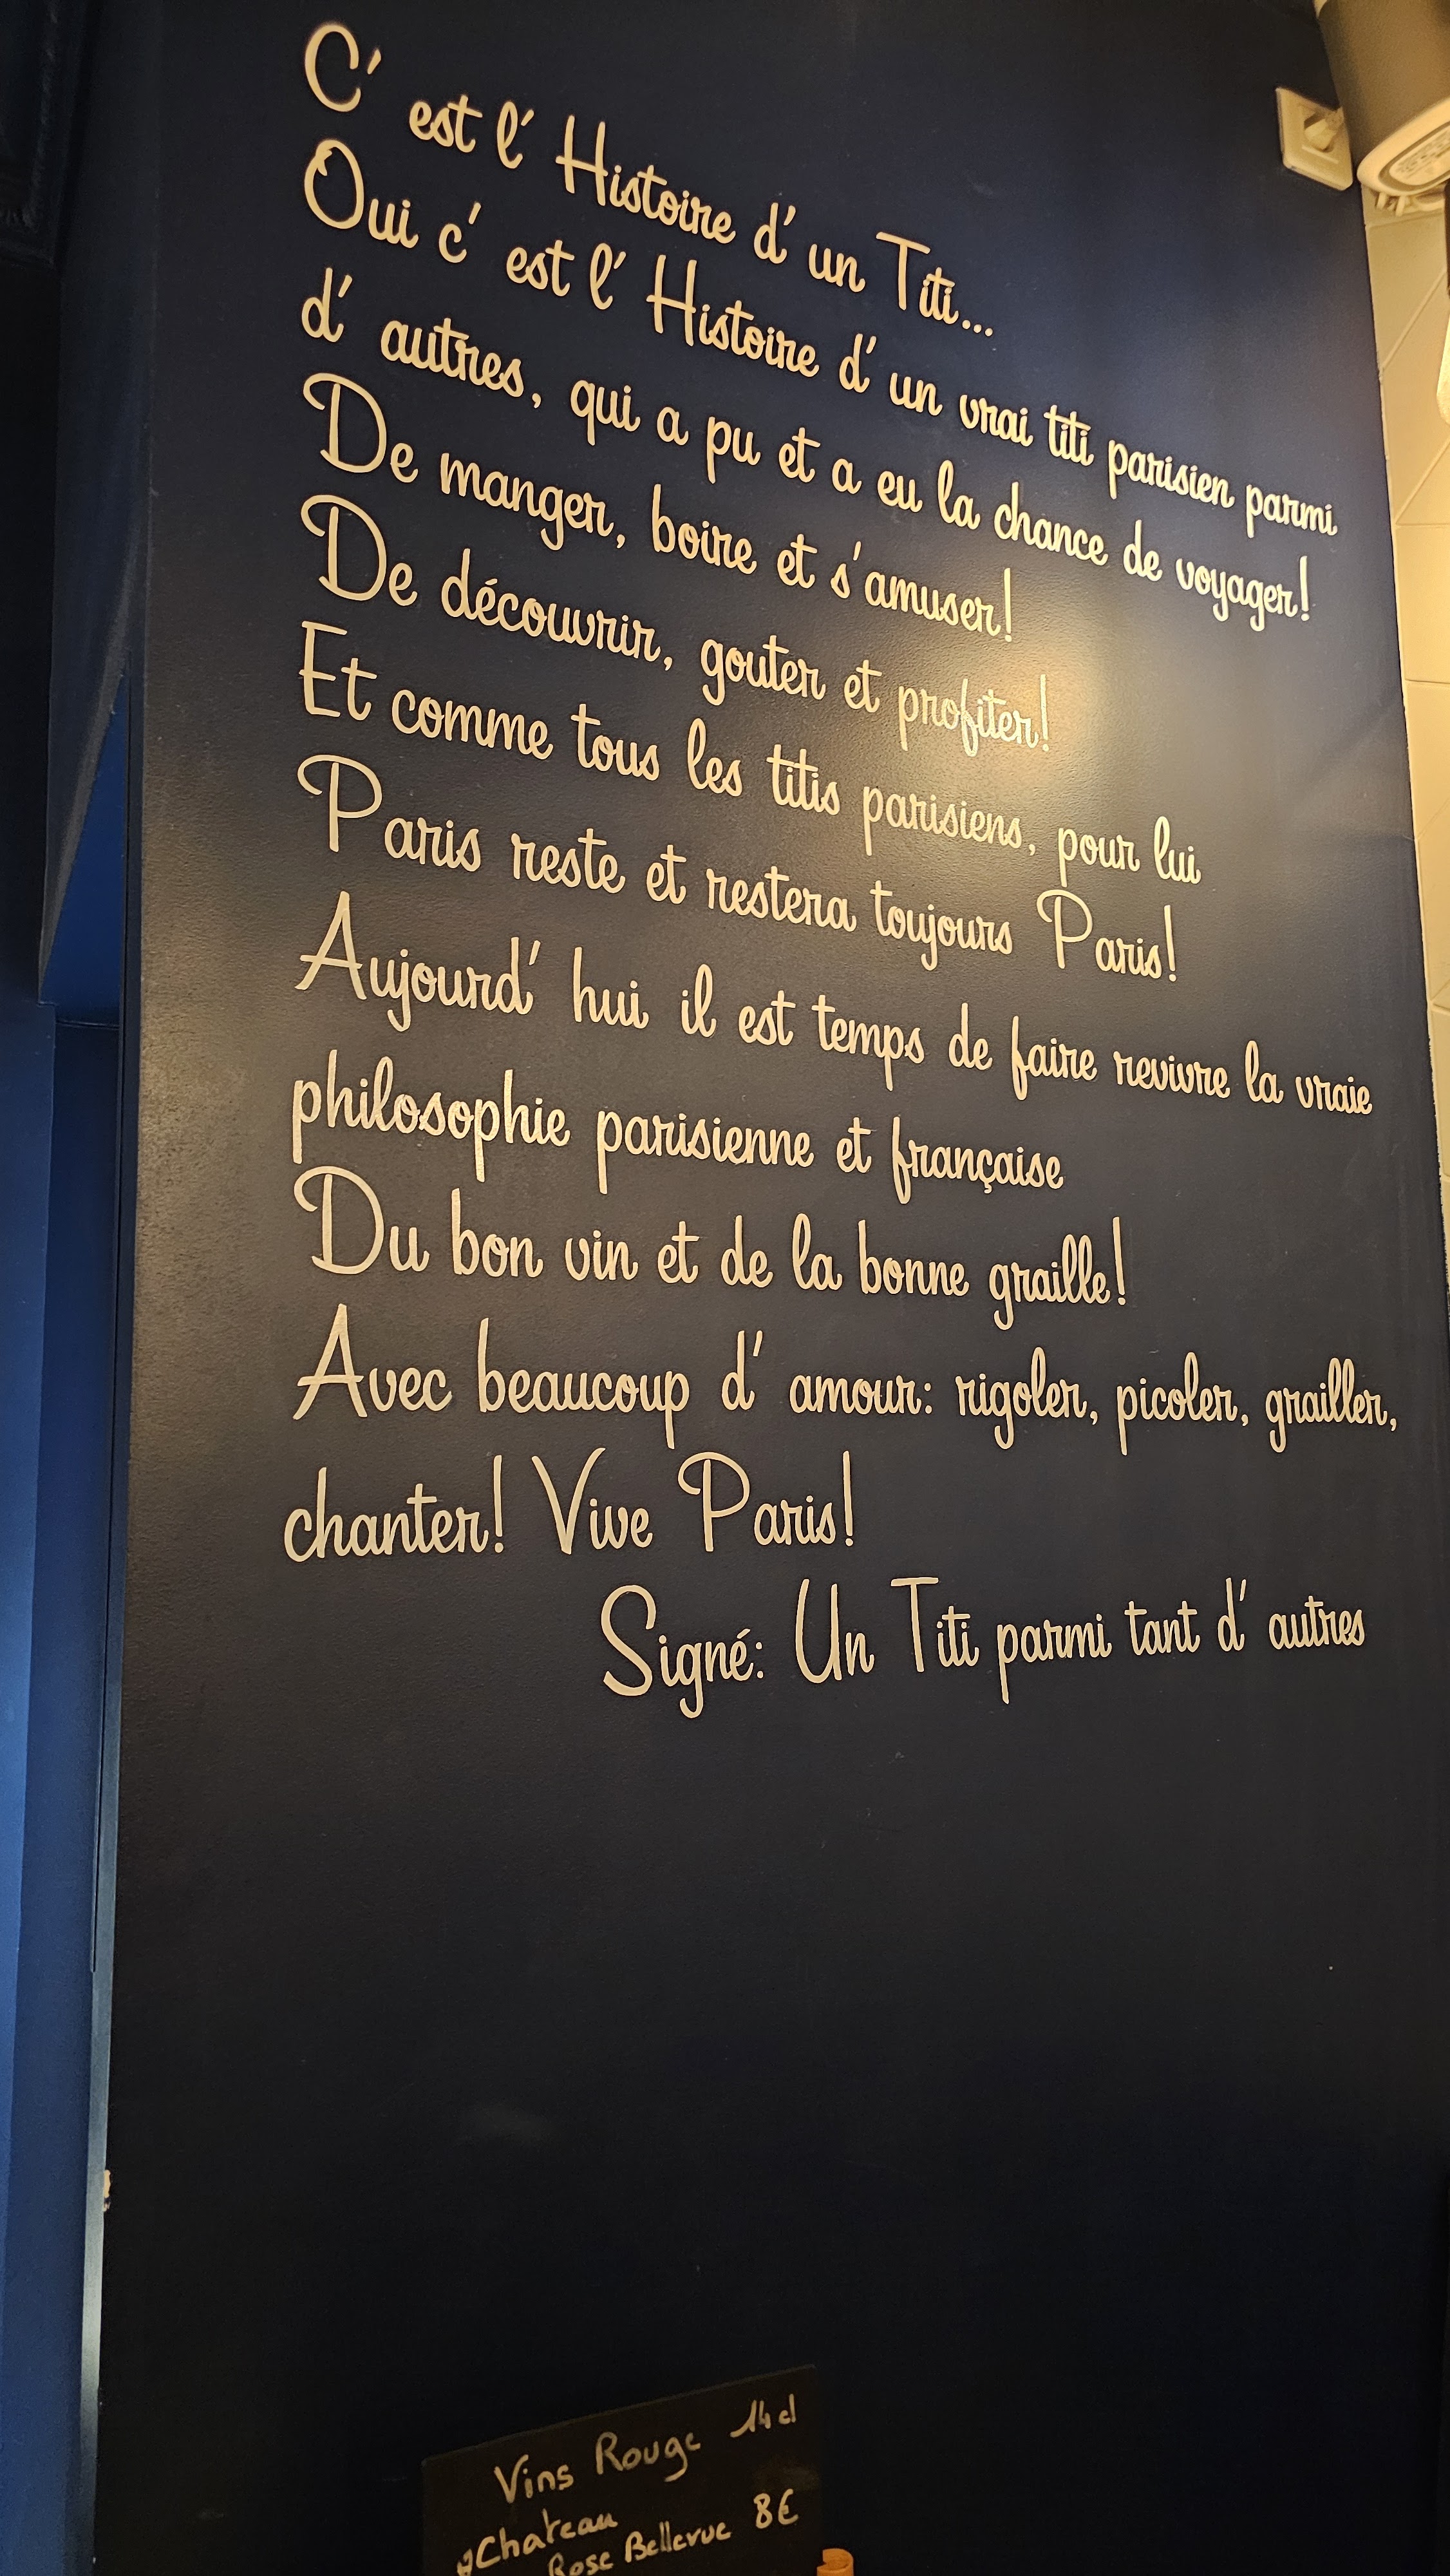 C' est l' Histoire d' un Titi...
Oui c' est l' Histoire d' un vrai titi parisien parmi
d' autres, qui a pu et a eu la chance de voyager!
De manger, boire et s'amuser!
De découvrir, gouter et profiter!
Et comme tous les titis parisiens, pour lui
Paris reste et restera toujours Paris!
Aujourd' hui il est temps de faire revivre la vraie
philosophie parisienne et française
Du bon vin et de la bonne graille!
Avec beaucoup d' amour: rigoler, picoler, grailler,
chanter! Vive Paris!
Signé: Un Titi parmi tant d' autres
Vins Rouge 14cl
Chateau
Rose Bellevue 8€